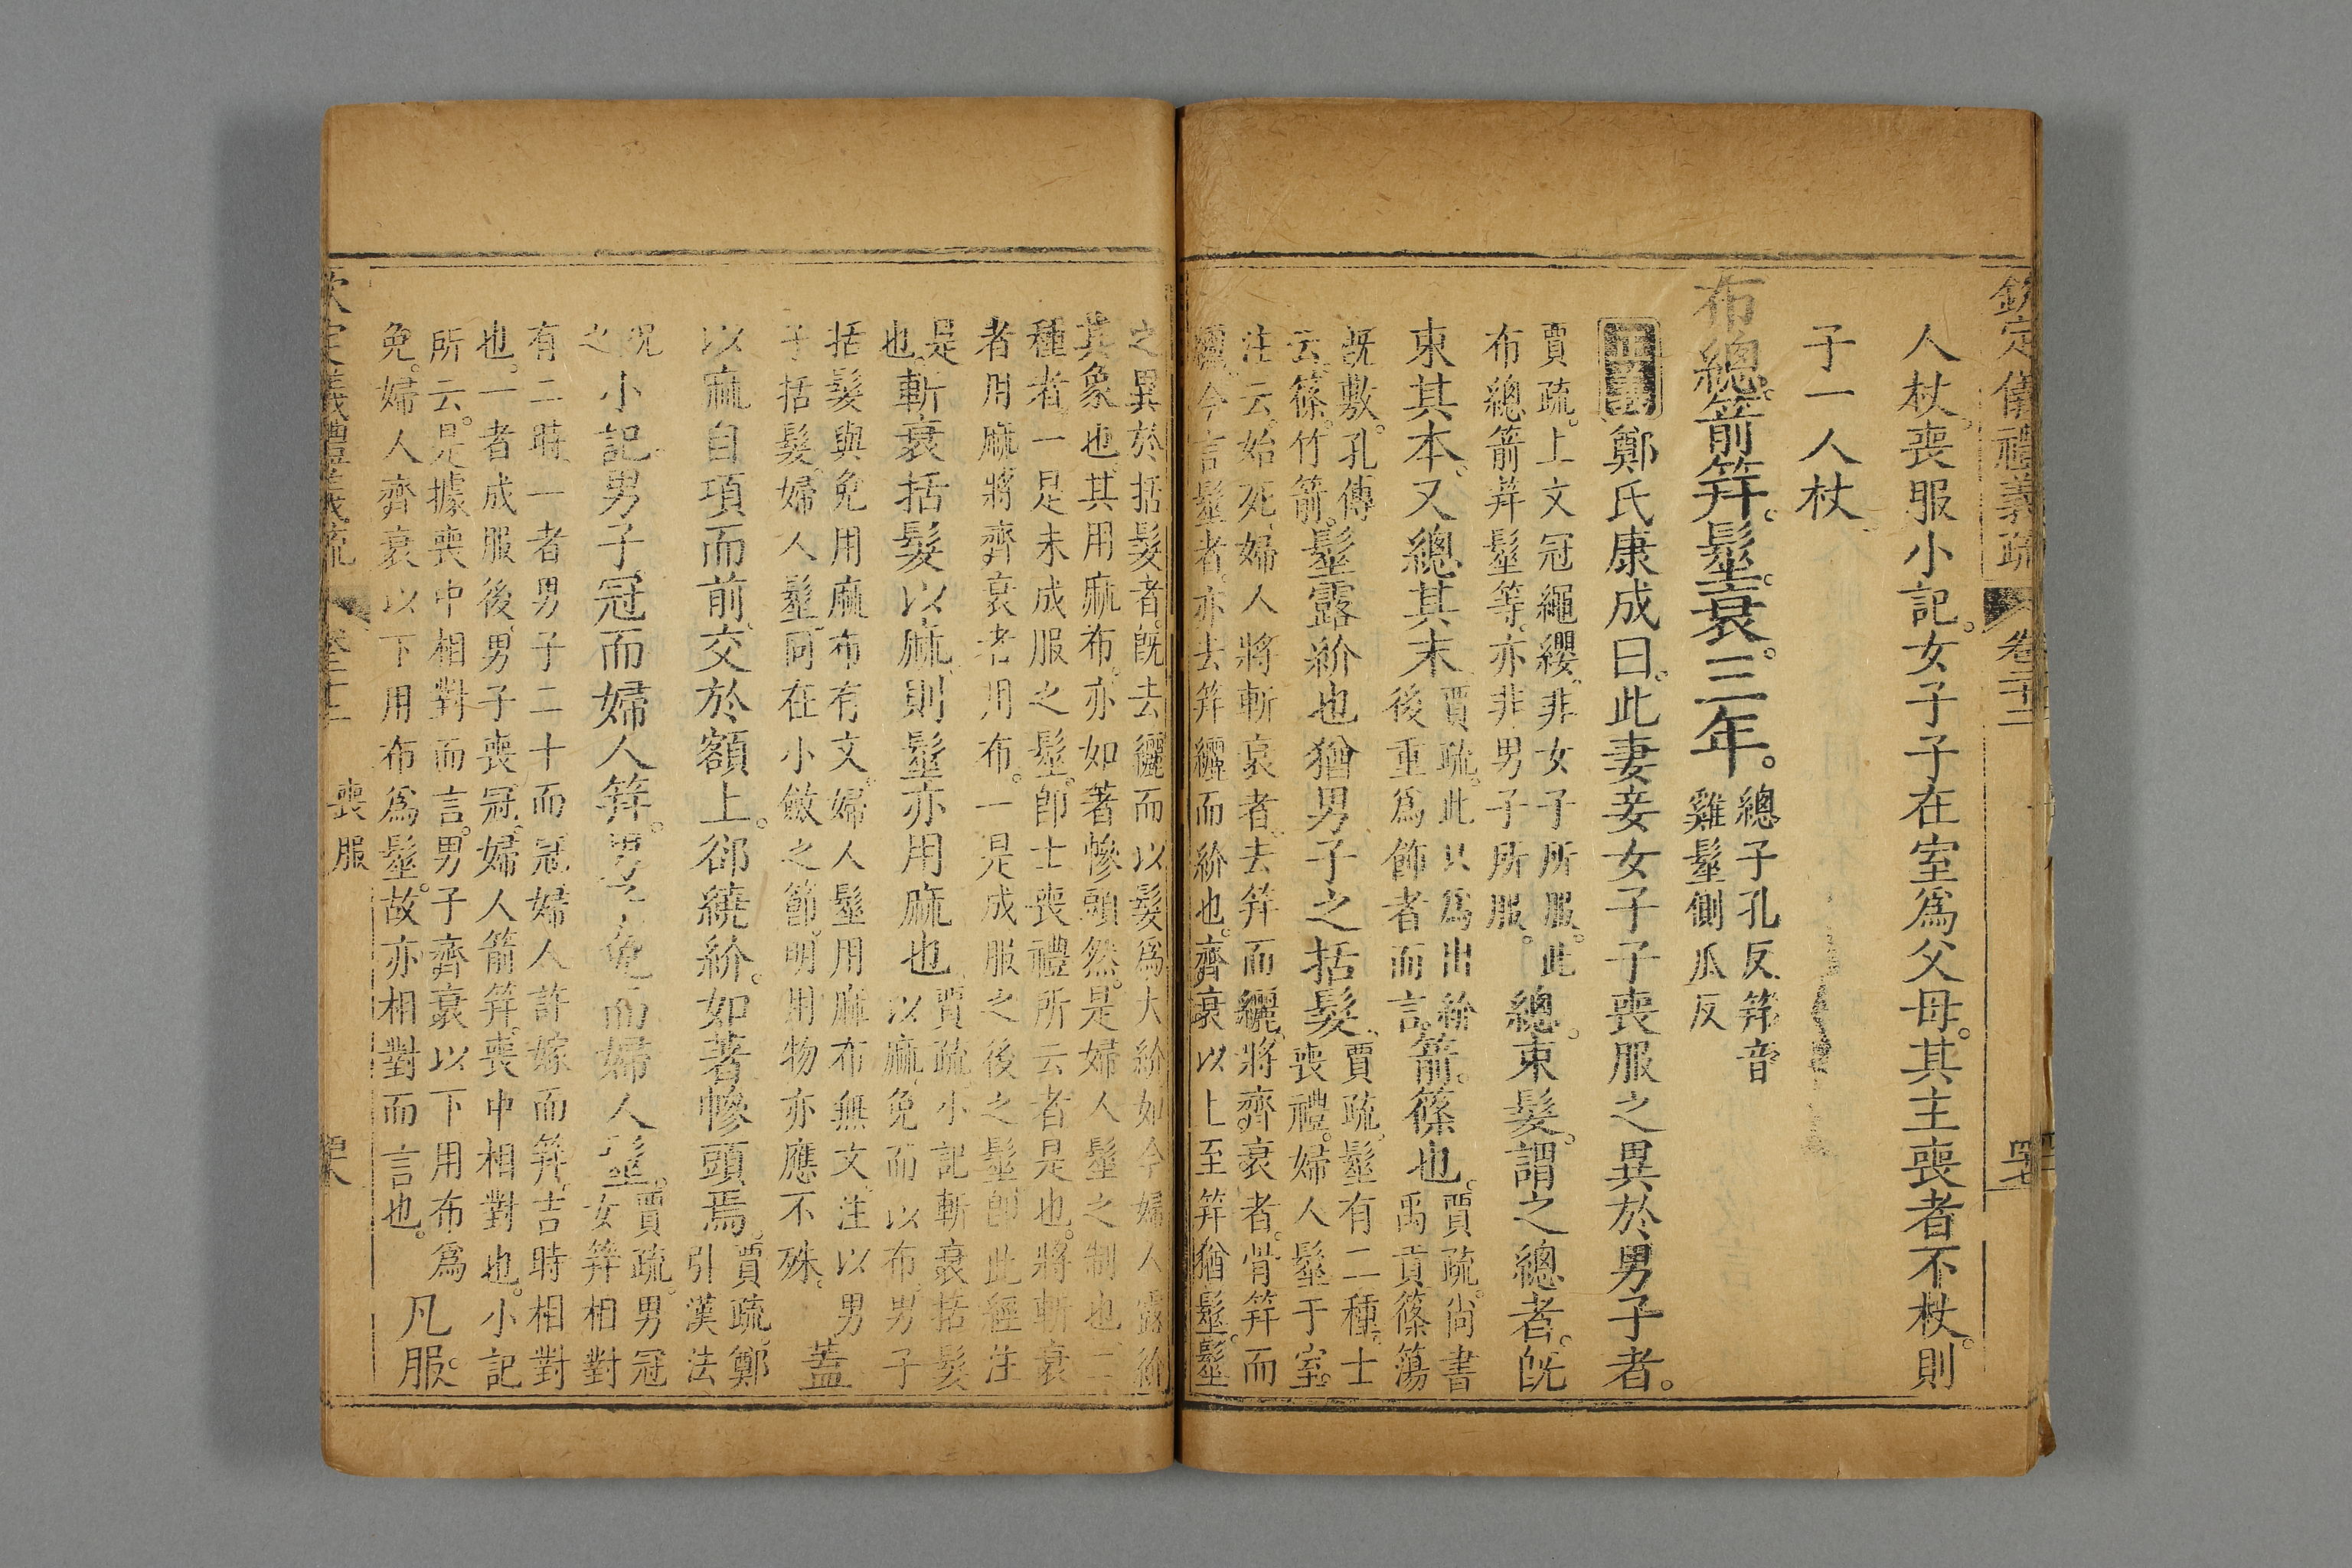 欽定儀禮義疏 卷二十二
人杖。喪服小記。女子子在室爲父母。其主喪者不杖。則
子一人杖
布總。箭筓。髽。衰。三年。總子孔反筓音
雞髽側瓜反
正義鄭氏康成曰。此妻妾女子子喪服之異於男子者。
賈疏。上文冠繩纓。非女子所服。此
布總箭筓髽等。亦非男子所服。
總。束髮。謂之總者。旣
束其本。又總其末
賈疏。此只爲出紒
後重爲飾者而言。
箭。篠也。
賈疏。尙書
禹貢篠簜
旣敷。孔傳
云。篠。竹箭。
髽露紒也猶男子之括髮
賈疏。髽有二種。士
喪禮。婦人髽于室。
注云。始死。婦人將斬衰者。去筓而纚。將齊衰者。骨筓而
纚。今言髽者。亦去筓纚而紒也。齊衰以上至筓猶髽。髽
之異於括髮者。旣去纚而以髮爲大紒如今婦人露紒
其象也。其用麻布。亦如著幓頭然。是婦人髽之制也二
種者。一是未成服之髽。卽士喪禮所云者是也。將斬衰
者用麻將齊衰者用布。一是成服之後之髽卽此經注
是
也
斬衰括髮以麻則髽亦用麻也
賈疏。小記斬衰括髮
以麻免而以布男子
括髮與免用麻布有文。婦人髽用麻布無文注以男
子括髮。婦人髽同在小斂之節。明用物亦應不殊。
蓋
以麻自項而前交於額上。郤繞紒。如著幓頭焉。
賈疏。鄭
引漢法
況
之
小記男子冠而婦人筓。男子免而婦人髽。
賈疏。男冠
女筓相對
有二時一者男子二十而冠婦人許嫁而筓吉時相對
也。一者成服後男子喪冠婦人箭筓。喪中相對也。小記
所云。是據喪中相對而言。男子齊衰以下用布爲
免。婦人齊衰以下用布爲髽。故亦相對而言也。
凡服。
喪服